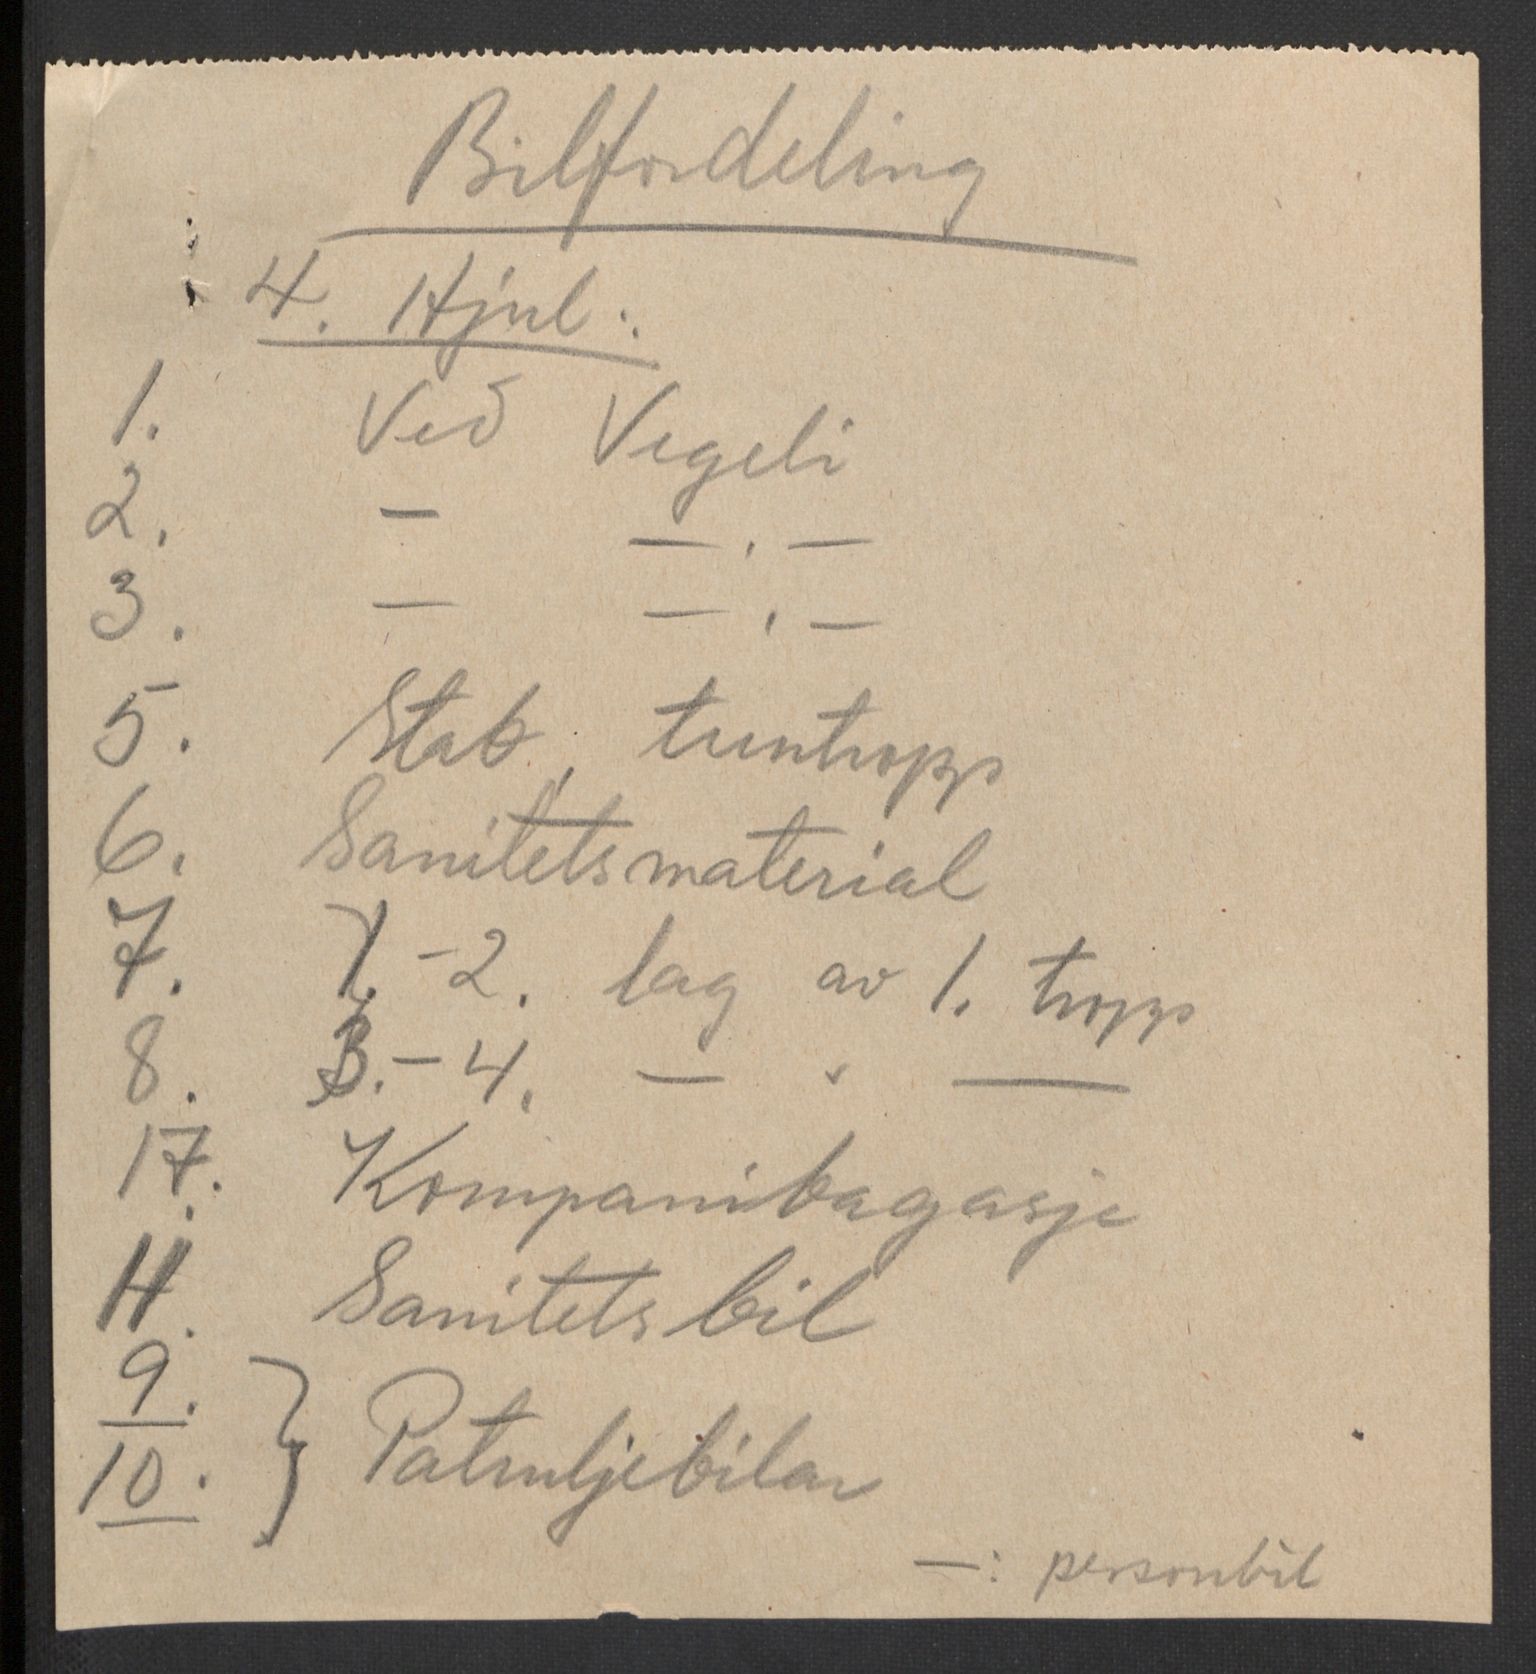 Bilfordeling
4. Hjul:
1. Ved Vegeli
2. — —.—
3. — —.—
5. Stab, tuntropp
6. Sanitetsmaterial
7. 1.-2. lag av 1. tropp
8. 3.-4. — " —
17. Kompanibagasje
11. Sanitetsbil
9. } Patruljebilar
10.
—: personbil